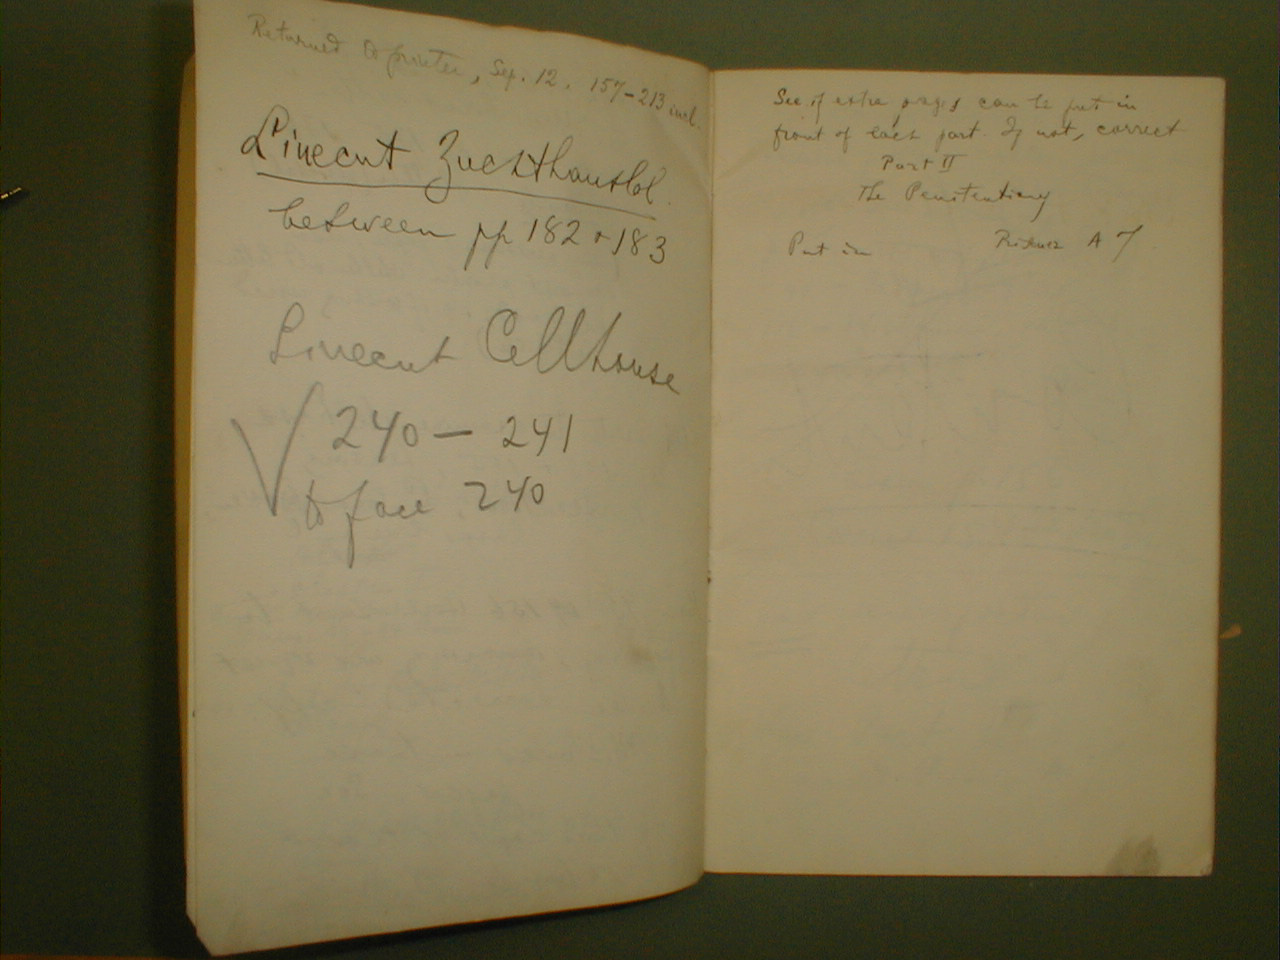 Returned to printer, Sep. 12. 157-213 incl.
Linecut Zuchthauslol.
between pp 182 + 183
Linecut Cellhouse
√ 240 — 241
to face 240
See if extra pages can be put in
front of each part. If not, correct
Part II
The Penitentiary
Put in Prisoner A 7